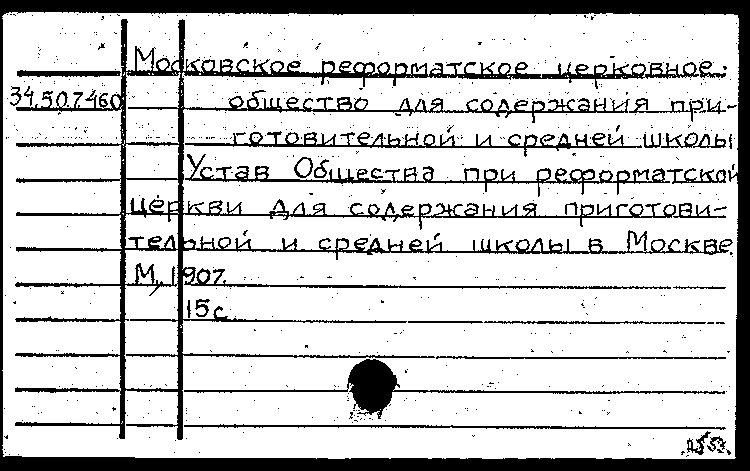 Московское реформатское церковное
34.507460 общество для содержания при-
готовительной и средней школы
Устав Общества при реформатской
церкви для содержания приготови-
тельной и средней школы в Москве
М., 1907.
15с.